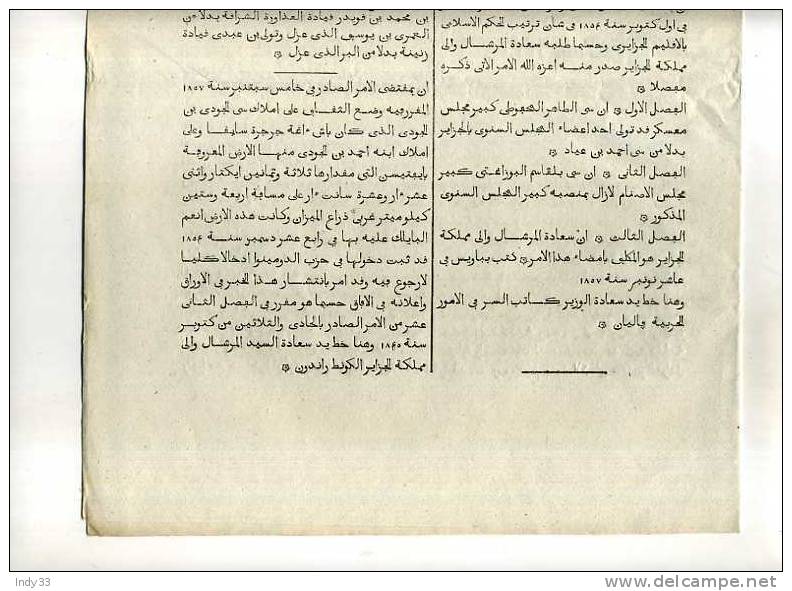 في اول كتوبر سنة ١٨٥٤ في شان ترتيب الحكم الاسلامي
بالاقليم الجزايري وحسبما طلبه سعادة المرشال والي
مملكة الجزاير صدر منه اعزه الله الامر الاتي ذكره
مفصلا
الفصل الاول ان سي الطاهر المحفوظي كبير مجلس
معسكر قد تولى احد اعضاء المجلس السنوي بالجزاير
بدلا من سي احمد بن عياد
الفصل الثاني ان سي بلقاسم البوزاغتي كبير
مجلس الاصنام لازال بمنصبه كبير المجلس السنوي
المذكور
الفصل الثالث ان سعادة المرشال والي مملكة
الجزاير هو المكلف بامضاء هذا الامر كتب بباريس في
عاشر نونبر سنة ١٨٥٧
وهنا خط يد سعادة الوزير كاتب السر في الامور
الحربية ڢاليان
بن محمد بن فويدر فيادة العذاورة الشرافة بدلا من
العمري بن يوسف الذي عزل وتولى بن عبدي فيادة
زنينة بدلا من البر الذي عزل
ان بمقتضى الامر الصادر في خامس سبتنبر سنة ١٨٥٧
المقرر فيه وضع الثقاف على املاك سي الجودي بن
الجودي الذي كان باش ءاغة جرجرة سابقا وعلى
املاك ابنه احمد بن الجودي منها الارض المعروفة
بايفتيسن التي مقدارها ثلاثة وثمانين ايكتار واثني
عشر ءار وعشرة سانت ءار على مسافة اربعة وستين
كيلوميتر غربي ذراع الميزان وكانت هذه الارض انعم
البايلك عليه بها في رابع عشر دسمبر سنة ١٨٥٤
قد ثبت دخولها في حزب الدومينوا ادخالا كليا
لا رجوع فيه وقد امر بانتشار هذا الخبر في الاوراق
واعلانه في الافاق حسبما هو مقرر في الفصل الثاني
عشر من الامر الصادر بالحادي والثلاثين من كتوبر
سنة ١٨٤٥ وهنا خط يد سعادة السيد المرشال والي
مملكة الجزاير الكونط راندون
Indy33
www.delcampe.net